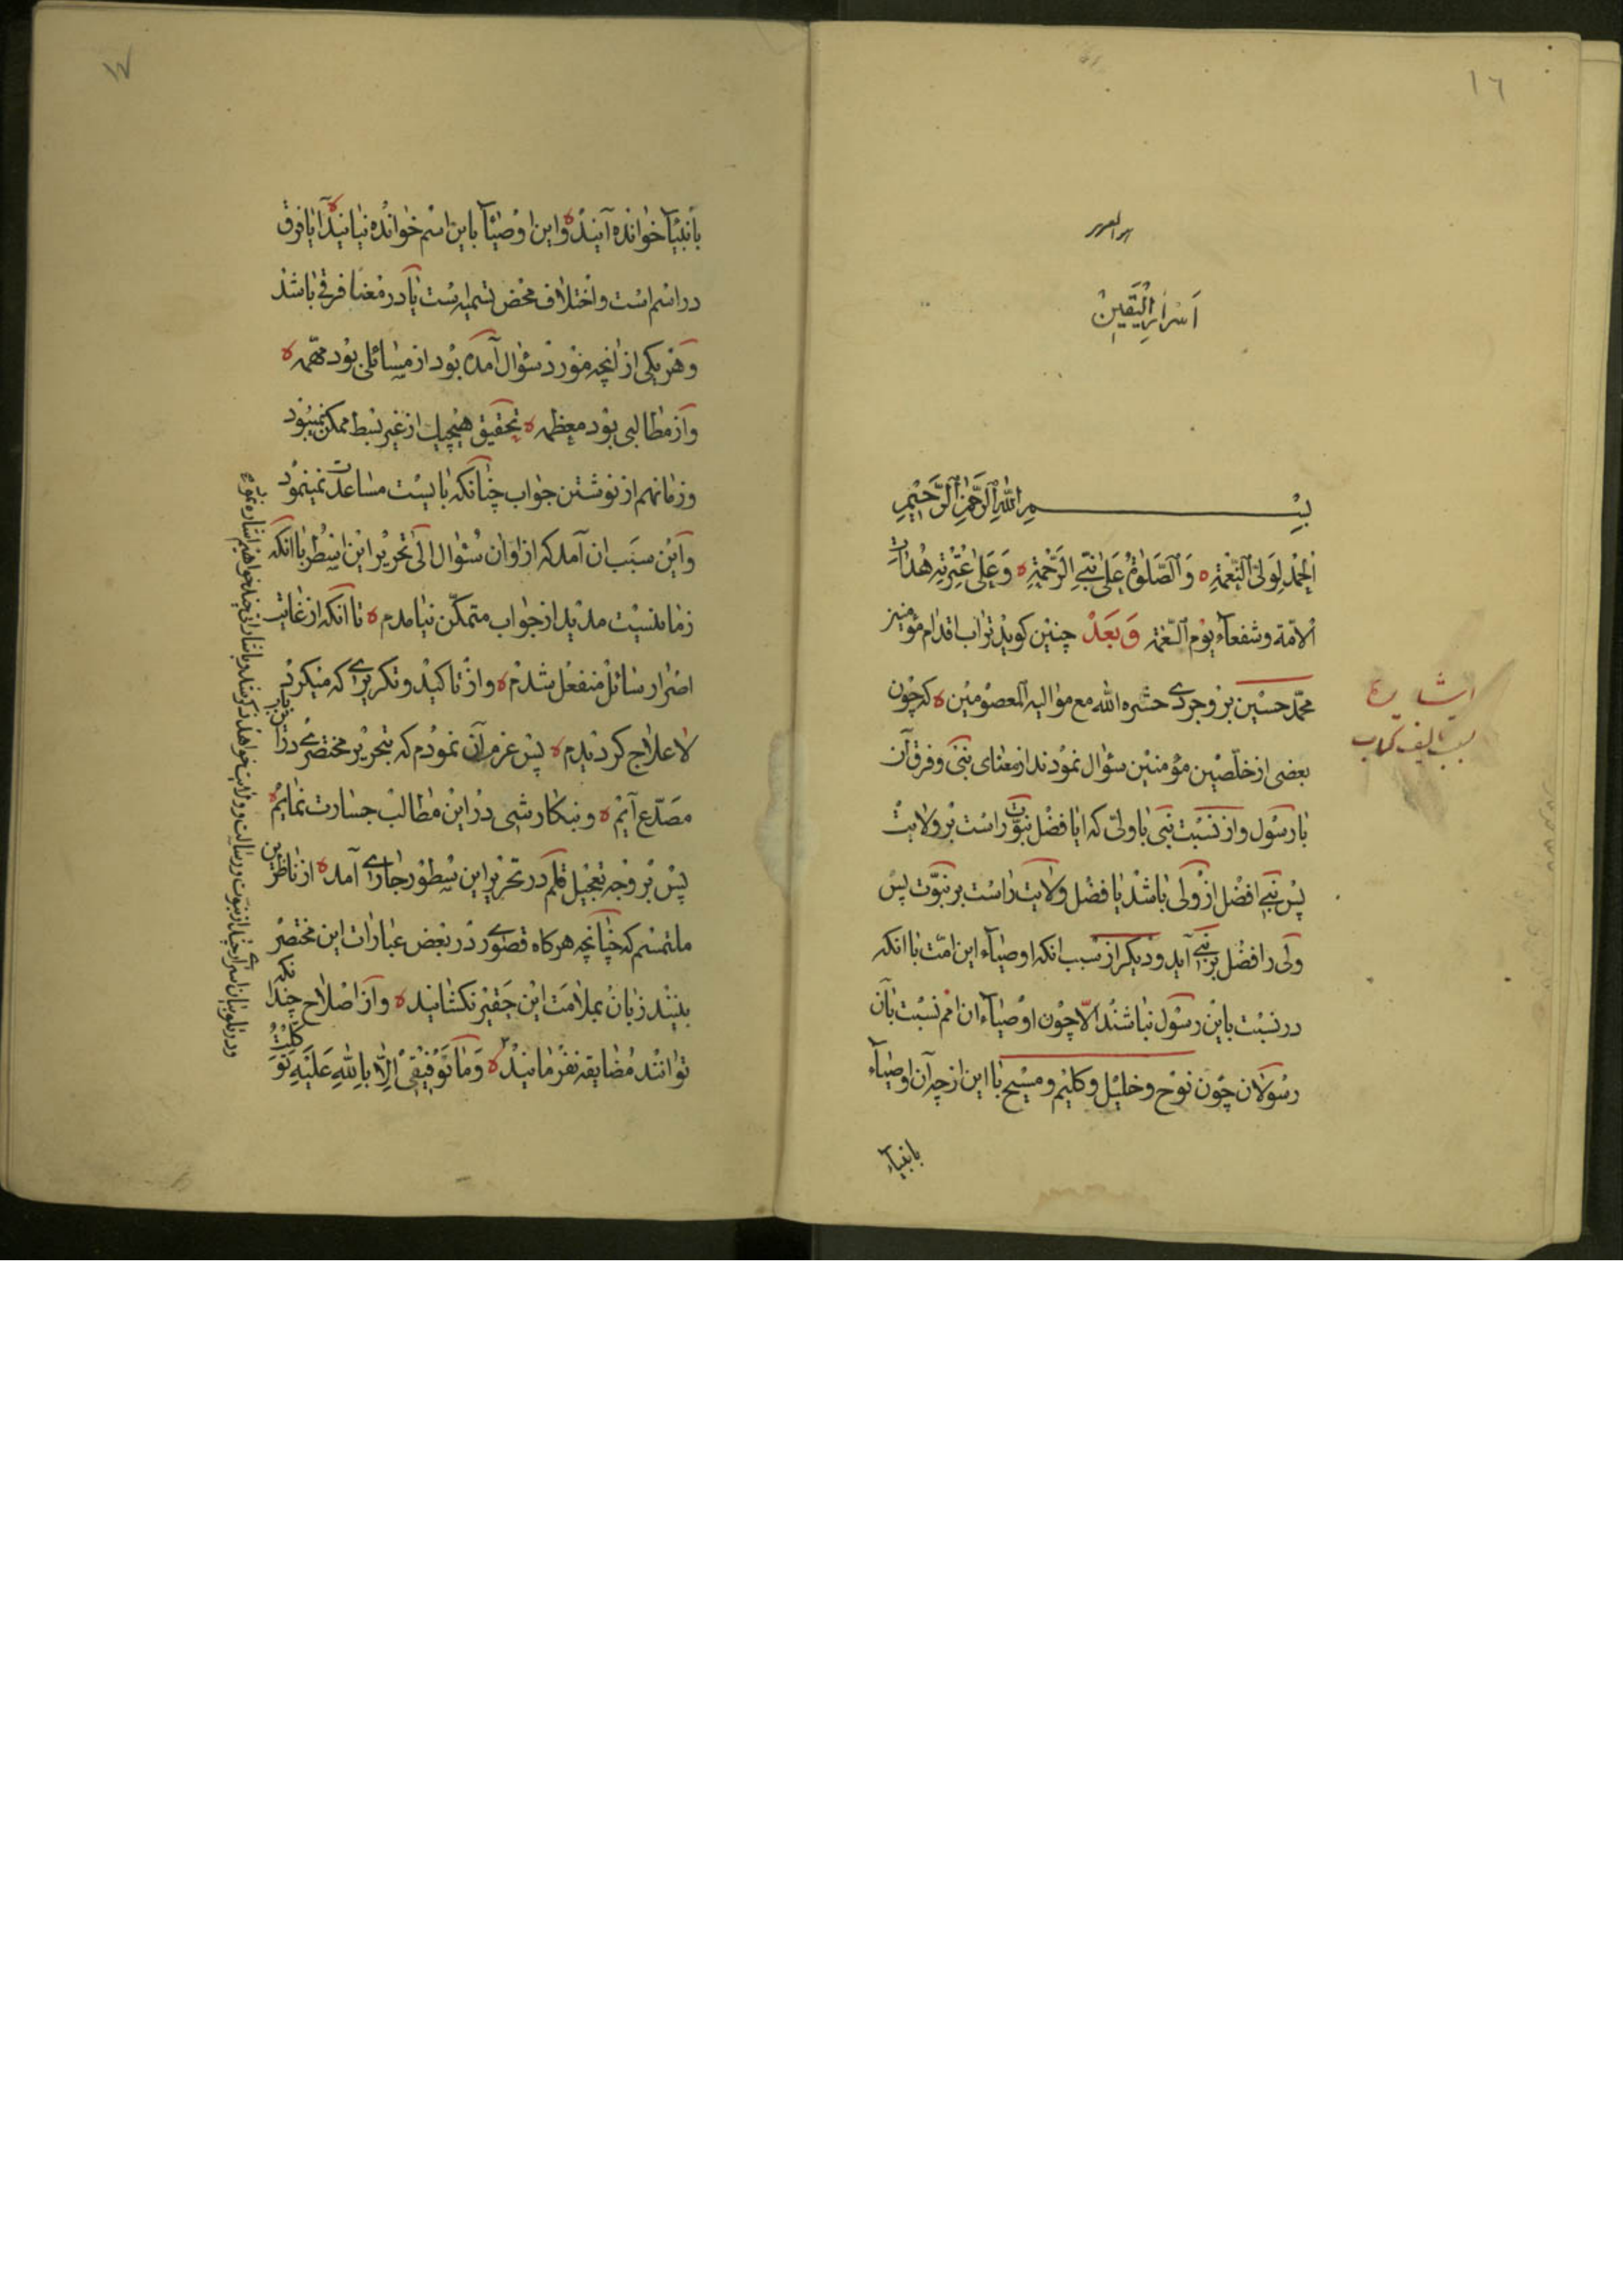 ١٦
اسرار الیقین
بسم الله الرحمن الرحیم
الحمد لولی النعمة ه والصلوة علی نبی الرحمة ه وعلی عترته هداة
الامة وشفعاء یوم الغمة وبعد چنین کوید تراب اقدام مؤمنین
محمد حسین بروجردی حشره الله مع موالیه المعصومین ه که چون
بعضی از خلصین مؤمنین سئوال نمودند از معنای نبی وفرق آن
با رسول واز نسبت نبی با ولی که ایا فضل نبوت راست بر ولایت
پس نبی افضل از ولی باشد یا فضل ولایت راست بر نبوت پس
ولی را فضل بر نبی آید ودیکر از سبب انکه اوصیاء این امت با انکه
در نسبت باین رسول نباشند الا چون اوصیاء ان امم نسبت بان
رسولان چون نوح وخلیل وکلیم ومسیح با این از چه آن اوصیاء
بانبیاء
اشاره
سبب تالیف کتاب
١٧
بانبیآ خوانده آیند ه واین اوصیآ باین اسم خوانده نیایند ه آیا فرق
در اسم است واختلاف محض تسمیه است یا در معنا فرقی باشد
وهر یکی از انچه مورد سئوال آمده بود از مسائلی بود مهمه ه
واز مطالبی بود معظمه ه تحقیق هیچیک از غیر بسط ممکن نمیبود
وزمانهم از نوشتن جواب چنانکه بایست مساعدت نمینمود
واین سبب ان آمد که از اوان سئوال الی تحریر این اسطر با انکه
زمانیست مدید از جواب متمکن نیامدم ه تا انکه از غایت
اصرار سائل منفعل شدم ه واز تاکید وتکریری که میکرد
لا علاج کردیدم ه پس عزم آن نمودم که بتحریر مختصری در آن باب
مصدع آیم ه وبنکارشی در این مطالب جسارت نمایم ه
پس بر وجه تعجیل قلم در تحریر این سطور جاری آمد ه از ناظرین
ملتمسم که چنانچه هرکاه قصوری در بعض عبارات این مختصر
بینند زبان بملامت این حقیر نکشانید ه واز اصلاح چندانکه
توانند مضایقه نفرمایند ه وما توفیقی الا بالله علیه توکلت